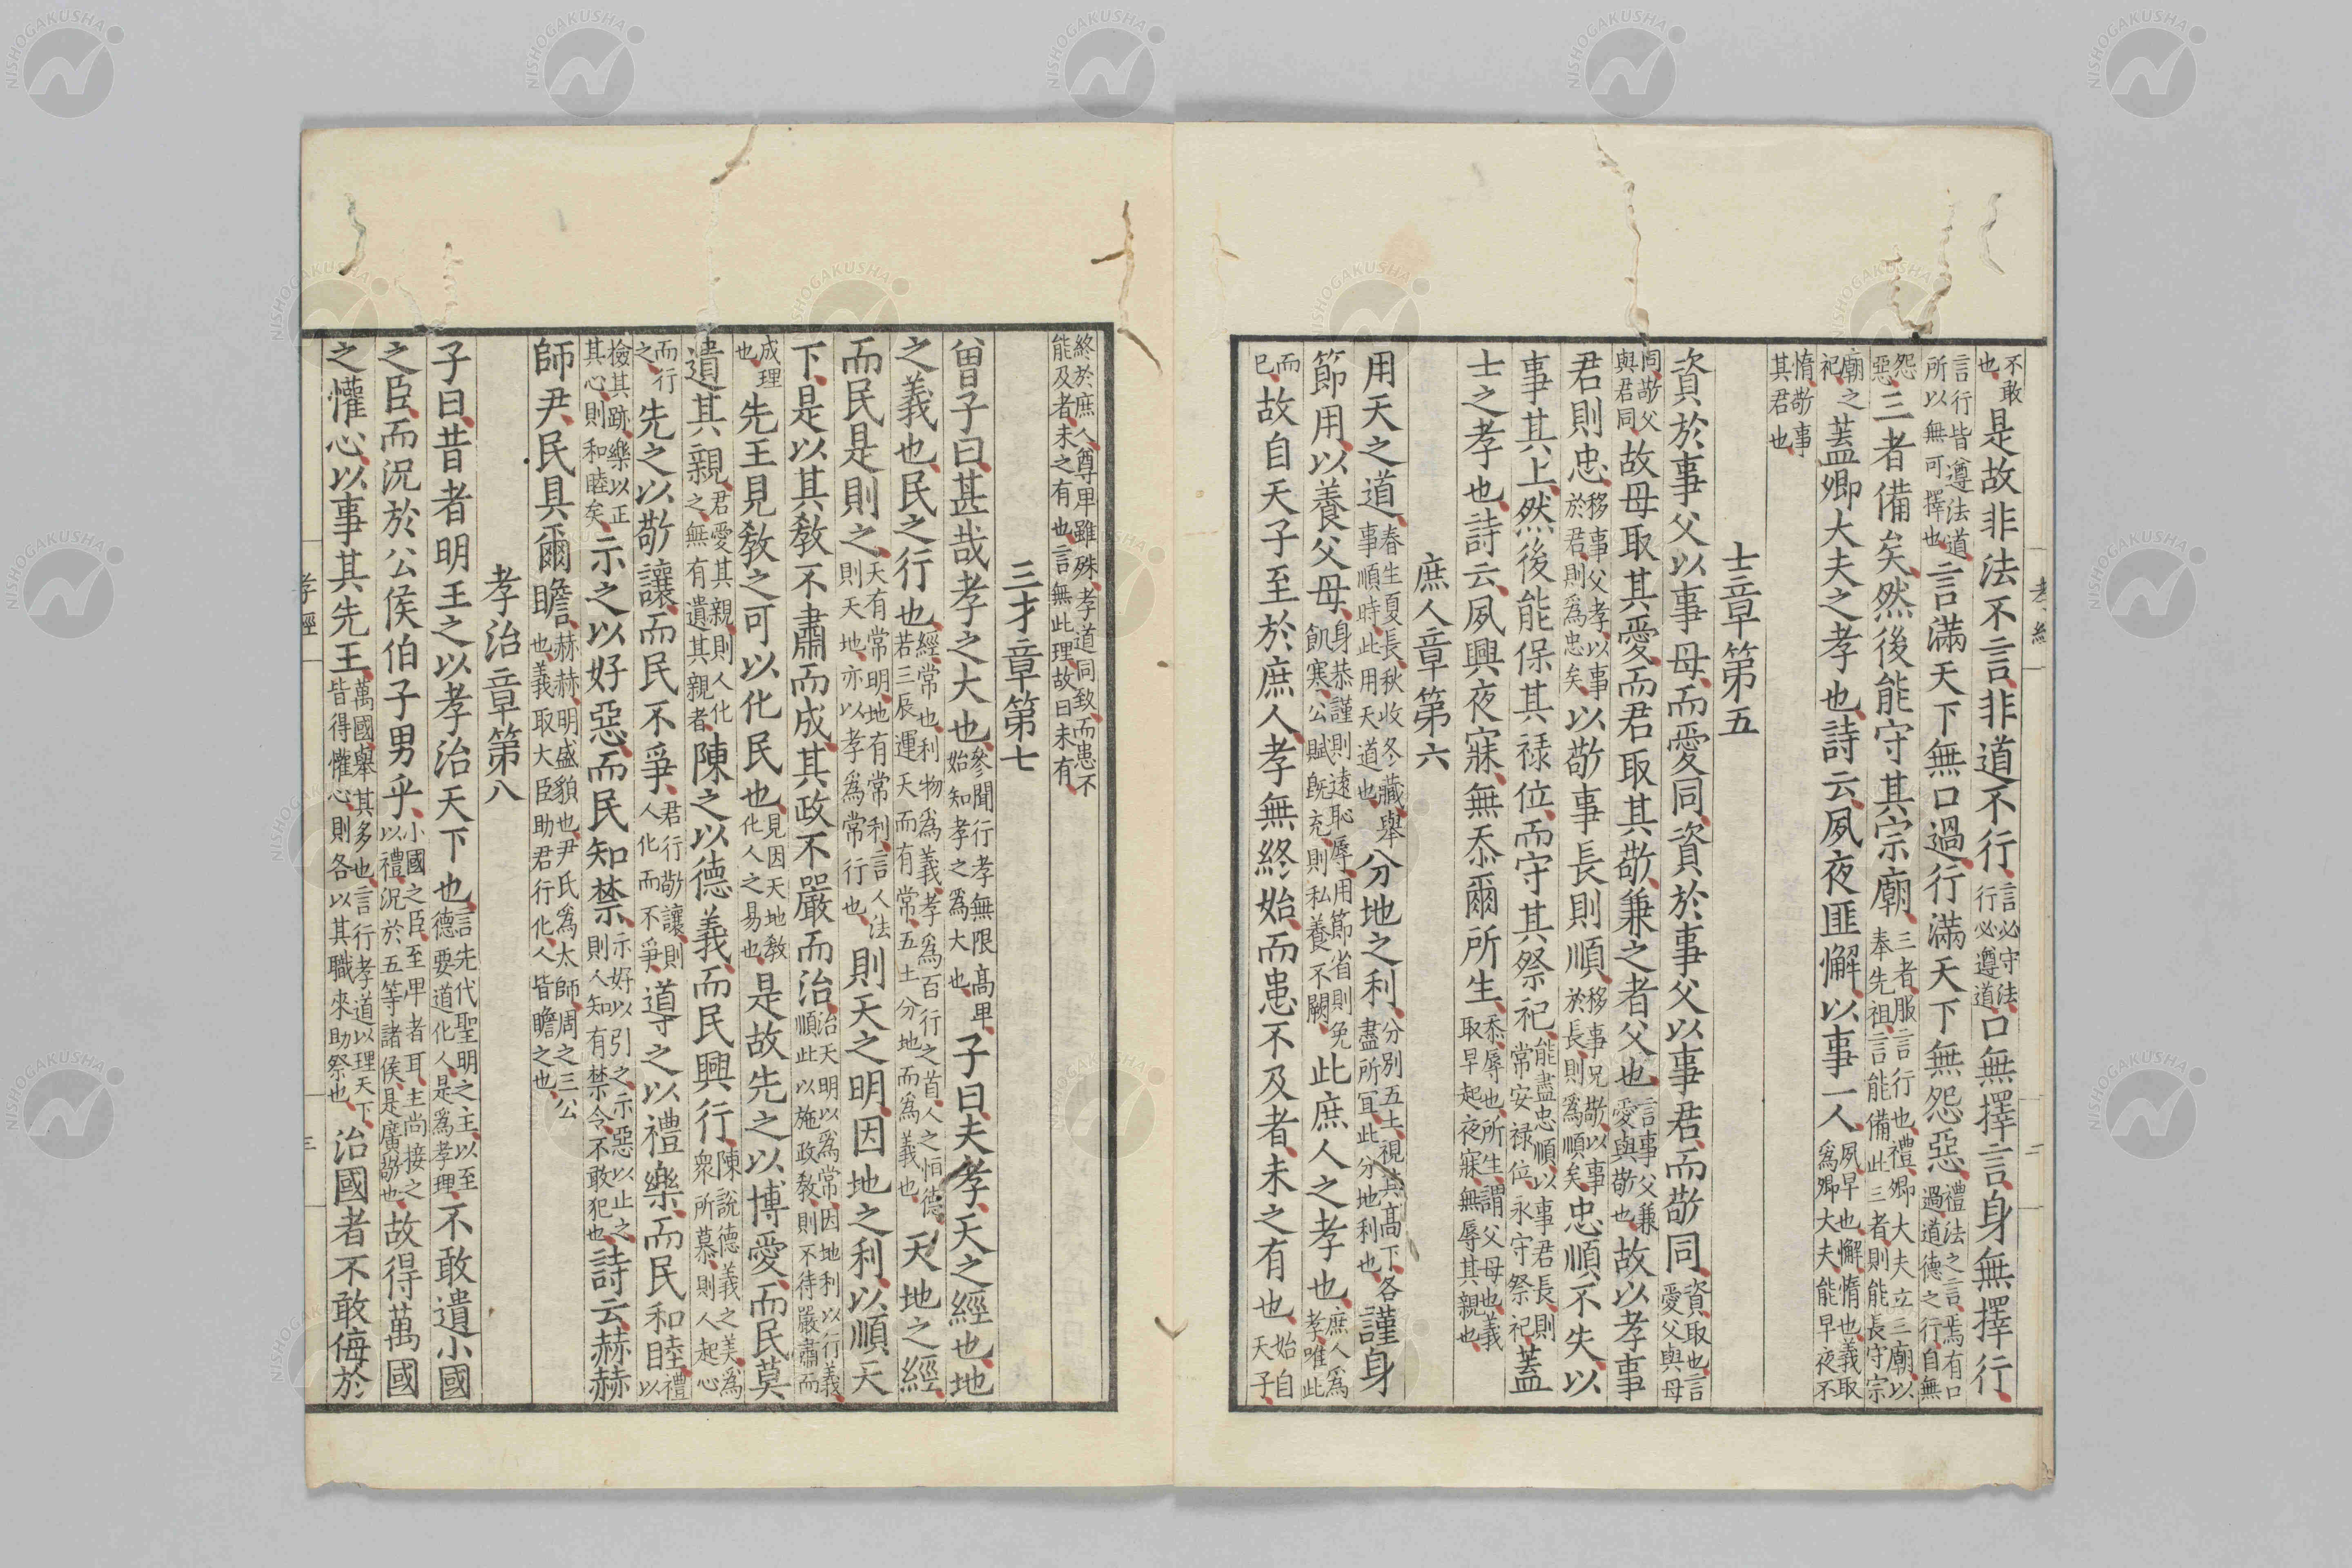 不敢也是故非法不言非道不行言必守法行必遵道口無擇言身無擇行
言行皆遵法道所以無可擇也言滿天下無口過行滿天下無怨惡禮法之言焉有口過道德之行自無
怨惡三者備矣然後能守其宗廟三者服言行也禮卿大夫立三廟以奉先祖言能備此三者則能長守宗
廟之祀蓋卿大夫之孝也詩云夙夜匪懈以事一人夙早也懈惰也義取爲卿大夫能早夜不
惰敬事其君也
士章第五
資於事父以事母而愛同資於事父以事君而敬同資取也言愛父與母
同敬父與君同故母取其愛而君取其敬兼之者父也言事父兼愛與敬也故以孝事
君則忠移事父孝以事於君則爲忠矣以敬事長則順移事兄敬以事於長則爲順矣忠順不失以
事其上然後能保其祿位而守其祭祀能盡忠順以事君長則常安祿位永守祭祀蓋
士之孝也詩云夙興夜寐無忝爾所生忝辱也所生謂父母也義取早起夜寐無辱其親也
庶人章第六
用天之道春生夏長秋收冬藏舉事順時此用天道也分地之利分別五土視其高下各盡所宜此分地利也謹身
節用以養父母身恭謹則遠恥辱用節省則免飢寒公賦既充則私養不闕此庶人之孝也庶人爲孝唯此
而已故自天子至於庶人孝無終始而患不及者未之有也始自天子
終於庶人尊卑雖殊孝道同致而患不能及者未之有也言無此理故曰未有
三才章第七
曾子曰甚哉孝之大也參聞行孝無限高卑始知孝之爲大也子曰夫孝天之經也地
之義也民之行也經常也利物爲義孝爲百行之首人之恒德若三辰運天而有常五土分地而爲義也天地之經
而民是則之天有常明地有常利言人法則天地亦以孝爲常行也則天之明因地之利以順天
下是以其教不肅而成其政不嚴而治治天明以爲常因地利以行義順此以施政教則不待嚴肅而
成理也先王見教之可以化民也見因天地教化人之易也是故先之以博愛而民莫
遺其親君愛其親則人化之無有遺其親者陳之以德義而民興行陳說德義之美爲衆所慕則人起心
而行之先之以敬讓而民不爭君行敬讓則人化而不爭導之以禮樂而民和睦禮以
檢其跡樂以正其心則和睦矣示之以好惡而民知禁示好以引之示惡以止之則人知有禁令不敢犯也詩云赫赫
師尹民具爾瞻赫赫明盛貌也尹氏爲太師周之三公也義取大臣助君行化人皆瞻之也
孝治章第八
子曰昔者明王之以孝治天下也言先代聖明之主以至德要道化人是爲孝理不敢遺小國
之臣而況於公侯伯子男乎小國之臣至卑者耳主尚接之以禮況於五等諸侯是廣敬也故得萬國
之懽心以事其先王萬國舉其多也言行孝道以理天下皆得懽心則各以其職來助祭也治國者不敢侮於
孝經
三
NISHOGAKUSHA